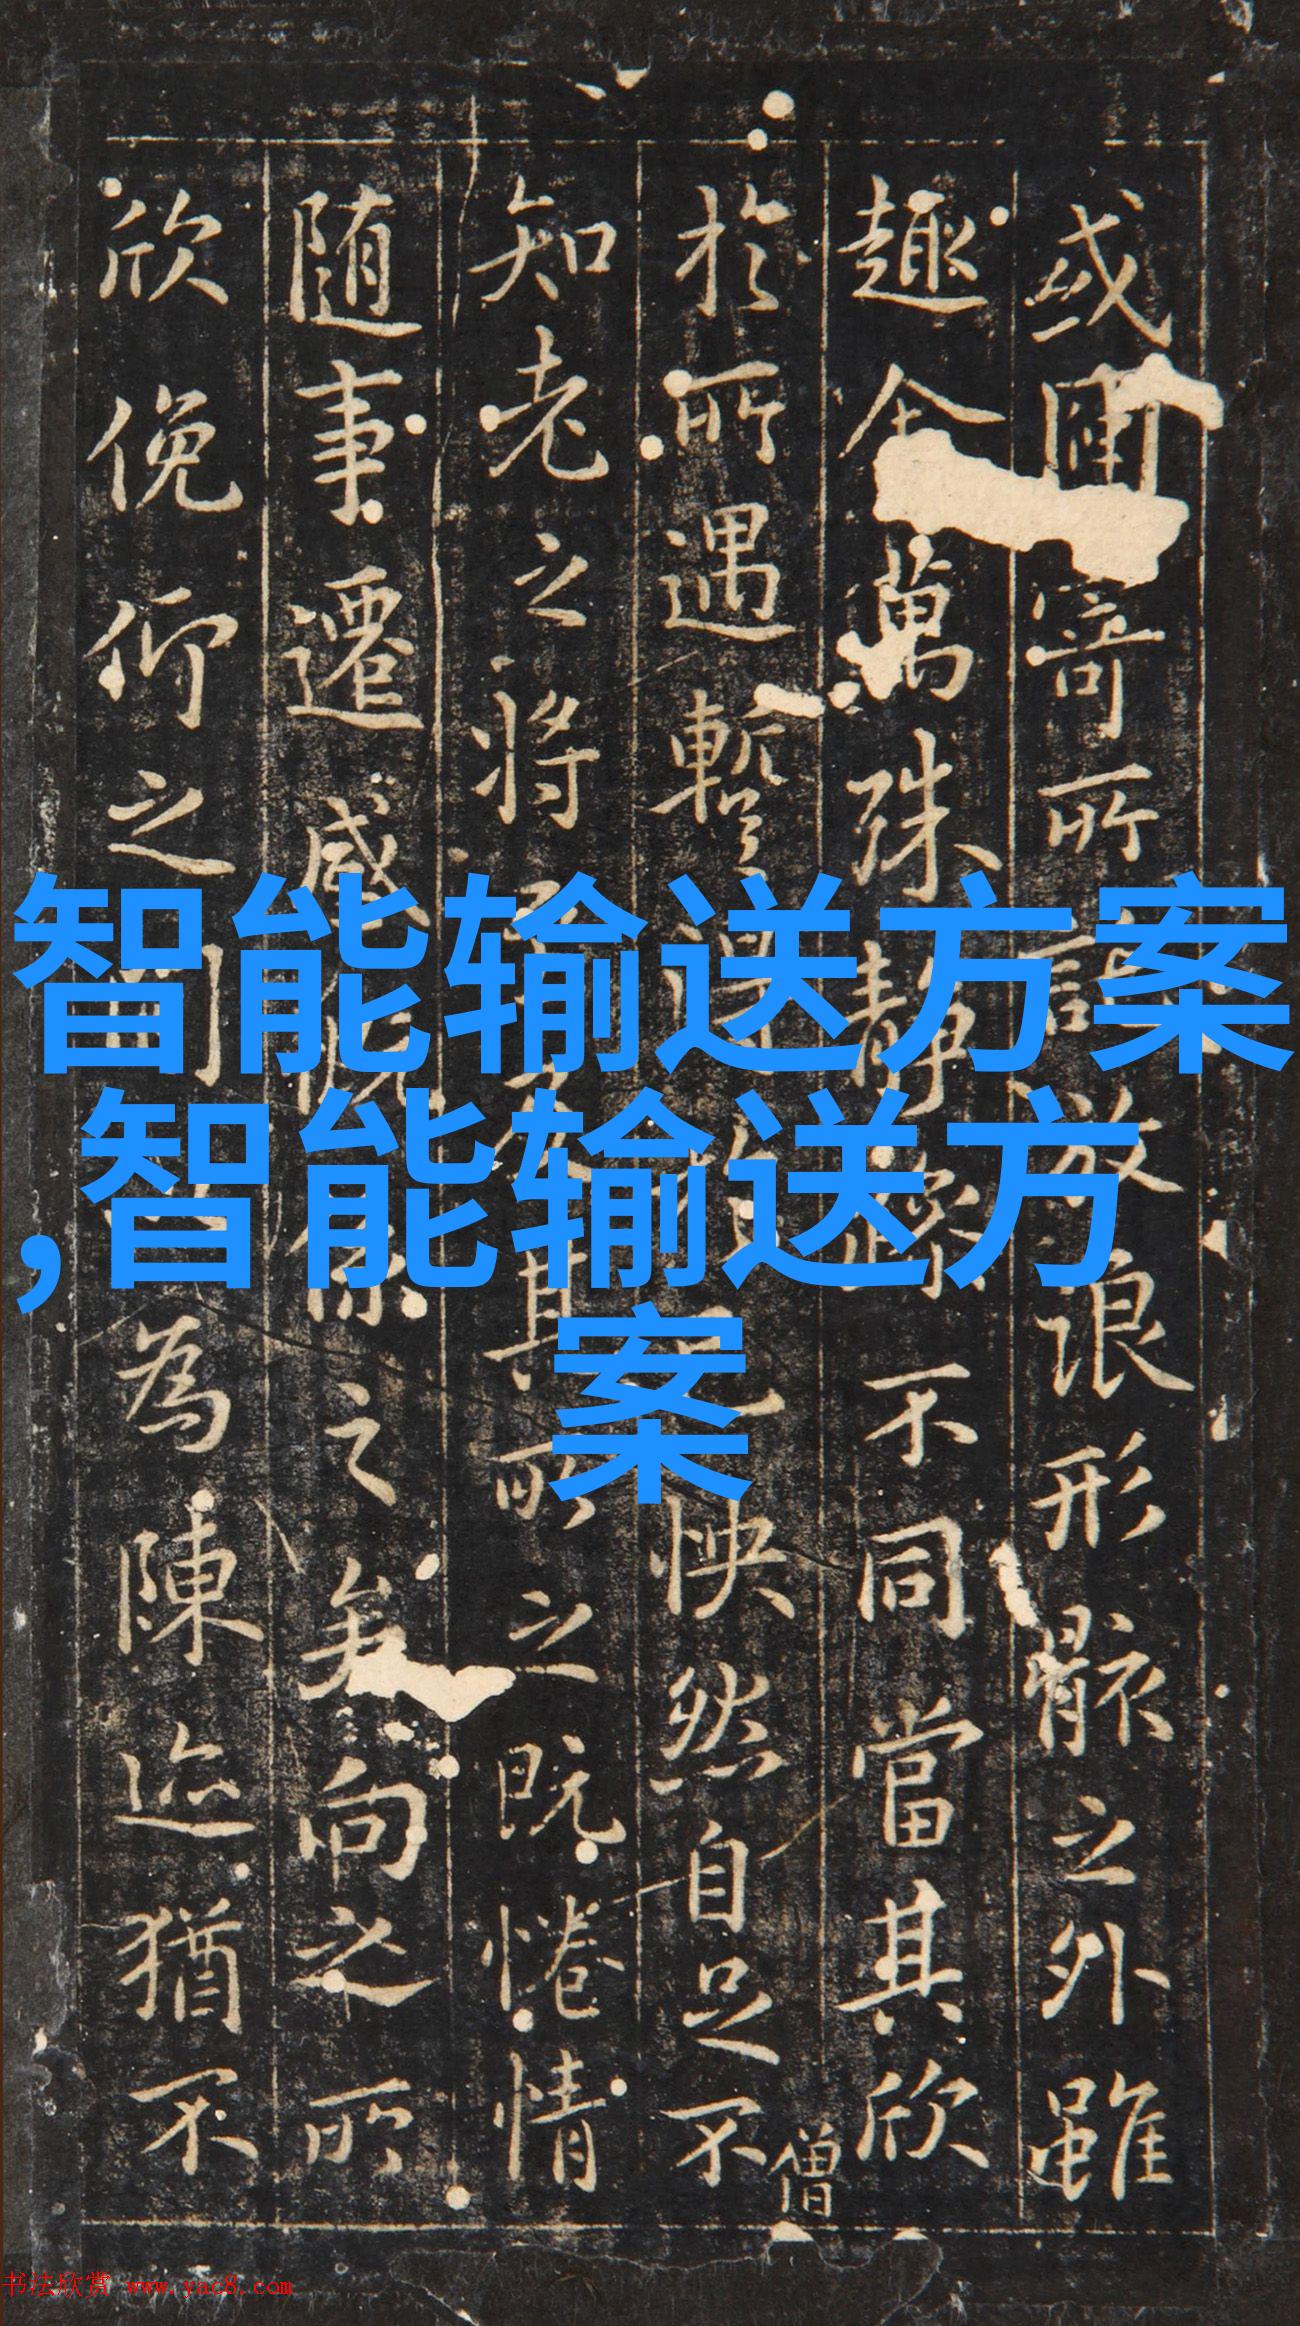 或因寄所託放浪形骸之外雖
趣舍萬殊靜躁不同當其欣
於所遇暫得於己怏然自足不
僧
知老之將至及其所之既惓情
随事遷感慨係之矣向之所
欣俛仰之閒以為陳迹猶不
智能输送方案
,智能输送方
案
书法欣赏 www.yac8.com